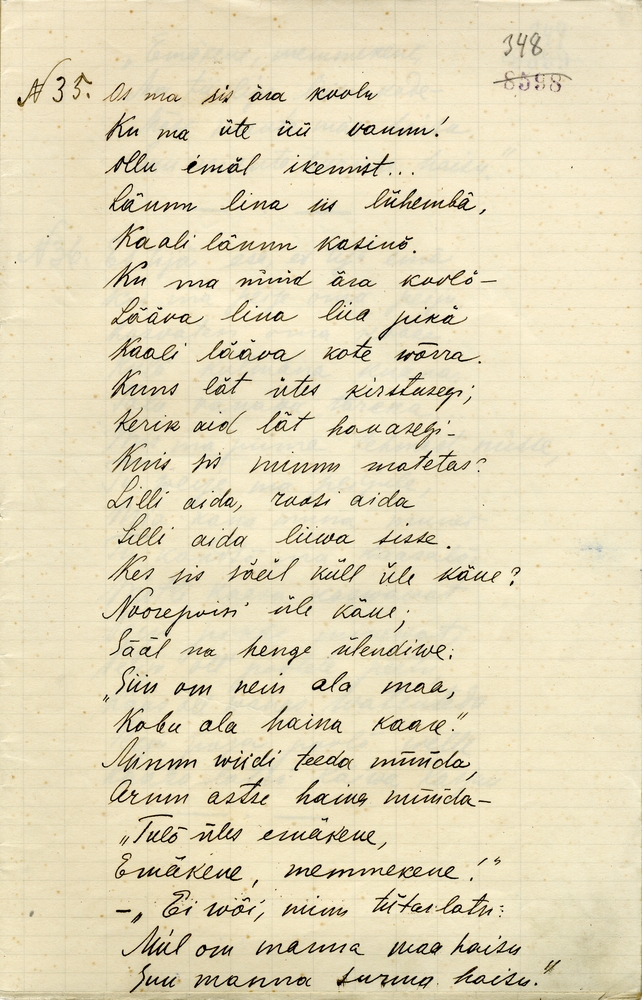 348
8598
№ 35. Os ma sis ära koolu
Ku ma üte üü vanun!
Ollu emäl ikemist...
Länum lina sis lühembä,
Kaali länum kasinö.
Ku ma nüüd ära koolö—
Lääva lina liia pikä
Kaali lääva kote wõrra.
Kuus lät ütes kirstusegi;
Kerik aid lät havasegi—
Kuis sis minnu matetas?
Lilli aida, roosi aida
Lilli aida liiwa sisse.
Kes sis sääl küll üle käüe?
Noorepoisi üle käüe;
Sääl na henge ülendiwe:
„Siin om neiu ala maa,
Kobu ala haina kaare."
Minnu wiidi teeda müüda,
Arum astse haina müüda—
„Tulö üles emäkene,
Emäkene, memmekene!"
—„Ei wõi, minu tütarlats:
Mul om manna maa haisu
Suu manna surma haisu."